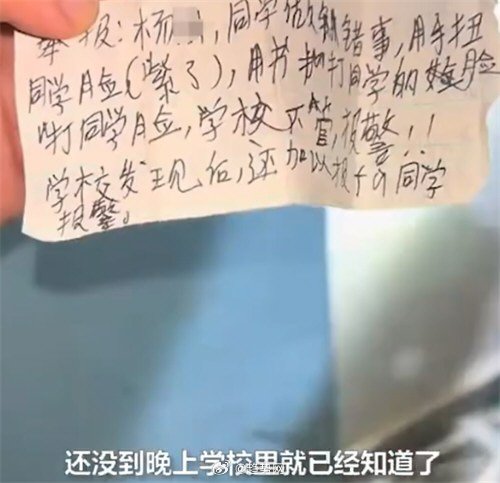 举报：杨，同学做错事，用手扭
同学月脸(紫了)，用书打同学的脸
打同学月脸，学校不管，报警！！
学校发现后，还加以报十の同学
报警。
还没到晚上学校里就已经知道了